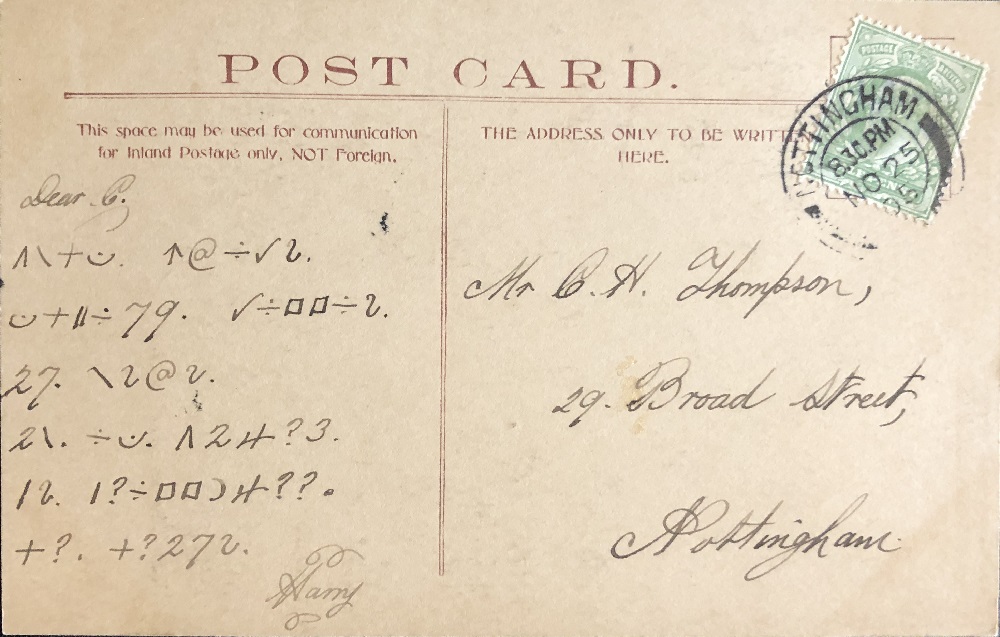 POST CARD.
This space may be used for communication
for Inland Postage only, NOT Foreign.
THE ADDRESS ONLY TO BE WRITT
HERE.
NOTTINGHAM
8.30 PM
NO 25
05
POSTAGE
Dear C.
∧\+ن. ↑@÷√2.
ن+11÷79. √÷□□÷2.
27. \2@2.
2\. ÷ن. ∧24?3.
12. 1?÷□□)4??.
+?. +?272.
Harry
Mr C. H. Thompson,
29. Broad Street,
Nottingham